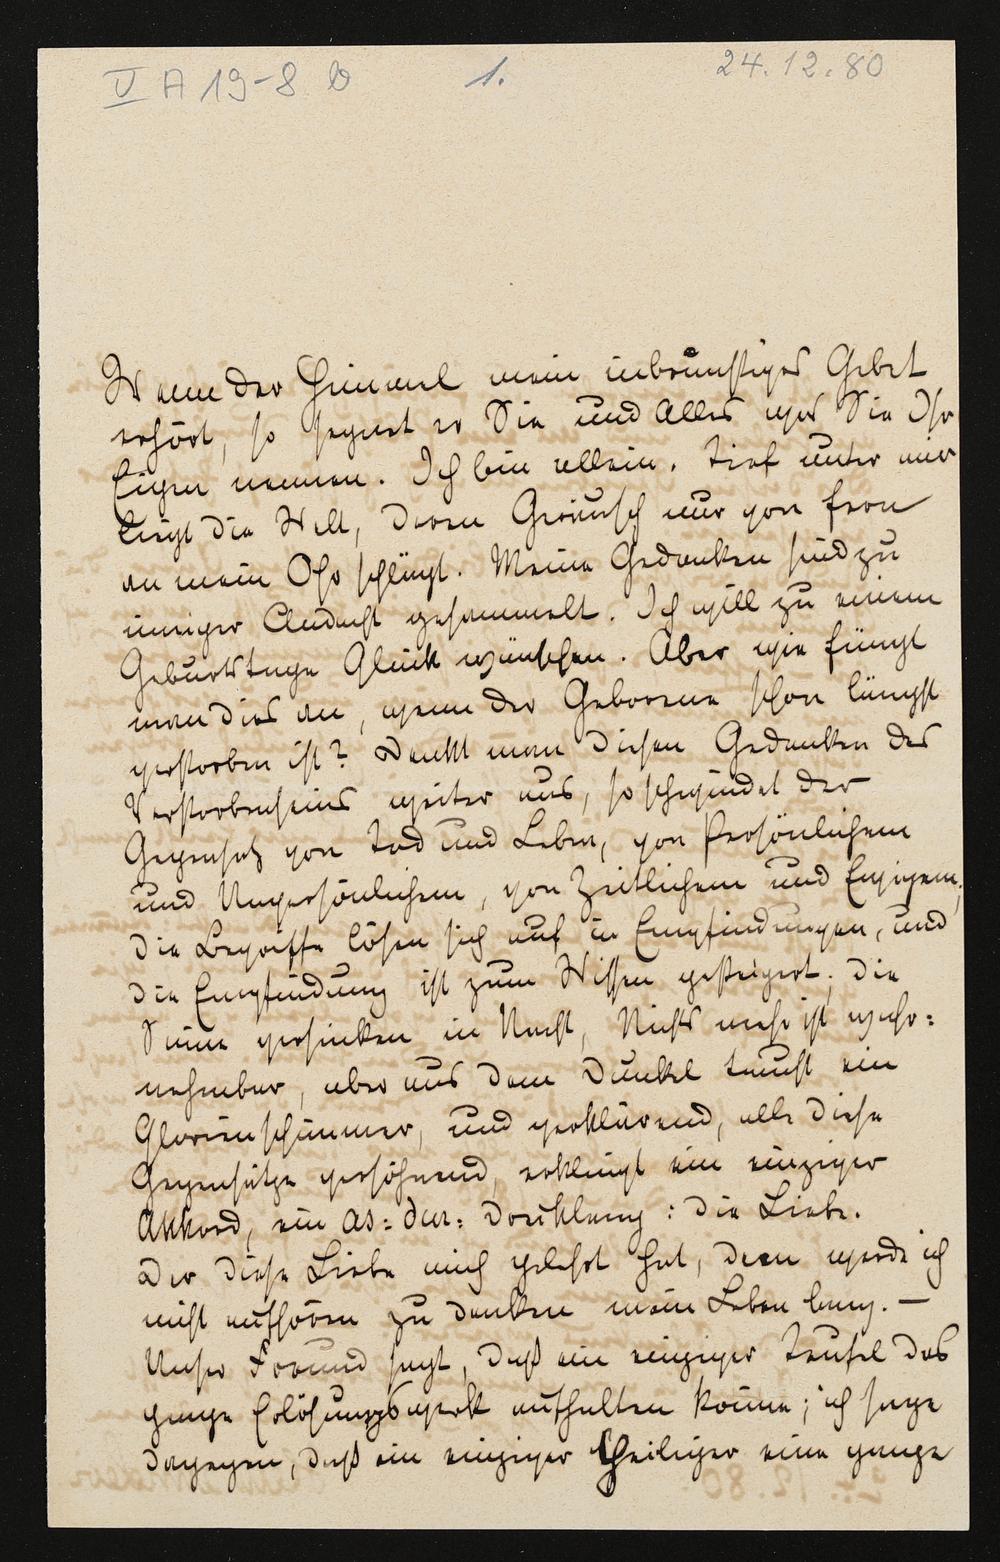 V A 19-8 b 1. 24.12.80
Wenn der Himmel mein inbrünstiges Gebet
erhört, so segnet er Sie und Alles was Sie Ihr
Eigen nennen. Ich bin allein. Tief unter mir
liegt die Welt, deren Geräusch nur von fern
an mein Ohr schlägt. Meine Gedanken sind zu
inniger Andacht gesammelt. Ich will zu einem
Geburtstage Glück wünschen. Aber wie fängt
man dies an, wenn der Geborene schon längst
verstorben ist? Denkt man diesen Gedanken des
Verstorbenseins weiter aus, so schwindet der
Gegensatz von Tod und Leben, von Persönlichem
und Unpersönlichem, von Zeitlichem und Ewigem;
die Begriffe lösen sich auf in Empfindungen, und
die Empfindung ist zum Wissen gesteigert; die
Sinne versinken in Nacht, Nichts mehr ist wahr=
nehmbar, aber aus dem Dunkel taucht ein
Glorienschimmer, und verklärend, alle diese
Gegensätze versöhnend, erklingt ein einziger
Akkord, ein As=dur=Dreiklang: die Liebe.
Der diese Liebe mich gelehrt hat, dem werde ich
nicht aufhören zu danken mein Leben lang. —
Unser Freund sagt, daß ein einziger Teufel das
ganze Erlösungswerk aufhalten könne; ich sage
dagegen, daß ein einziger Heiliger eine ganze